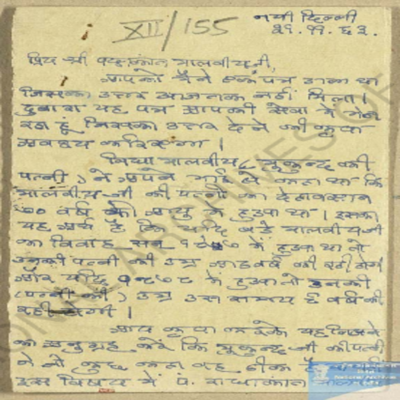 XII/155
नयी दिल्ली
२१.११.६३.
प्रिय श्री पद्मकांत मालवीय जी,
आपको मैंने एक पत्र डाला था
जिसका उत्तर आजतक नहीं मिला।
दुबारा यह पत्र आपकी सेवा में भेज
रहा हूं जिसका उत्तर देने की कृपा
अवश्य करिएगा।
विद्या मालवीय (मुकुन्द की
पत्नी) ने अपने से कहा था कि
मालवीय जी की पत्नी का देहावसान
वर्ष की आयु में हुआ था। इसका
यह अर्थ है कि यदि बड़े मालवीय जी
का विवाह सन् में हुआ था तो
उनकी पत्नी की उम्र वर्ष की रही होगी
और यदि १८७८ में हुआ तो उनकी
(पत्नी की) उम्र उस समय ६ वर्ष की
रही होगी।
आप कृपा करके यह लिखने
का अनुग्रह करें कि मुकुन्द जी की पत्नी
ने जो कुछ कहा वह ठीक है
इस विषय में पं. राधाकान्त